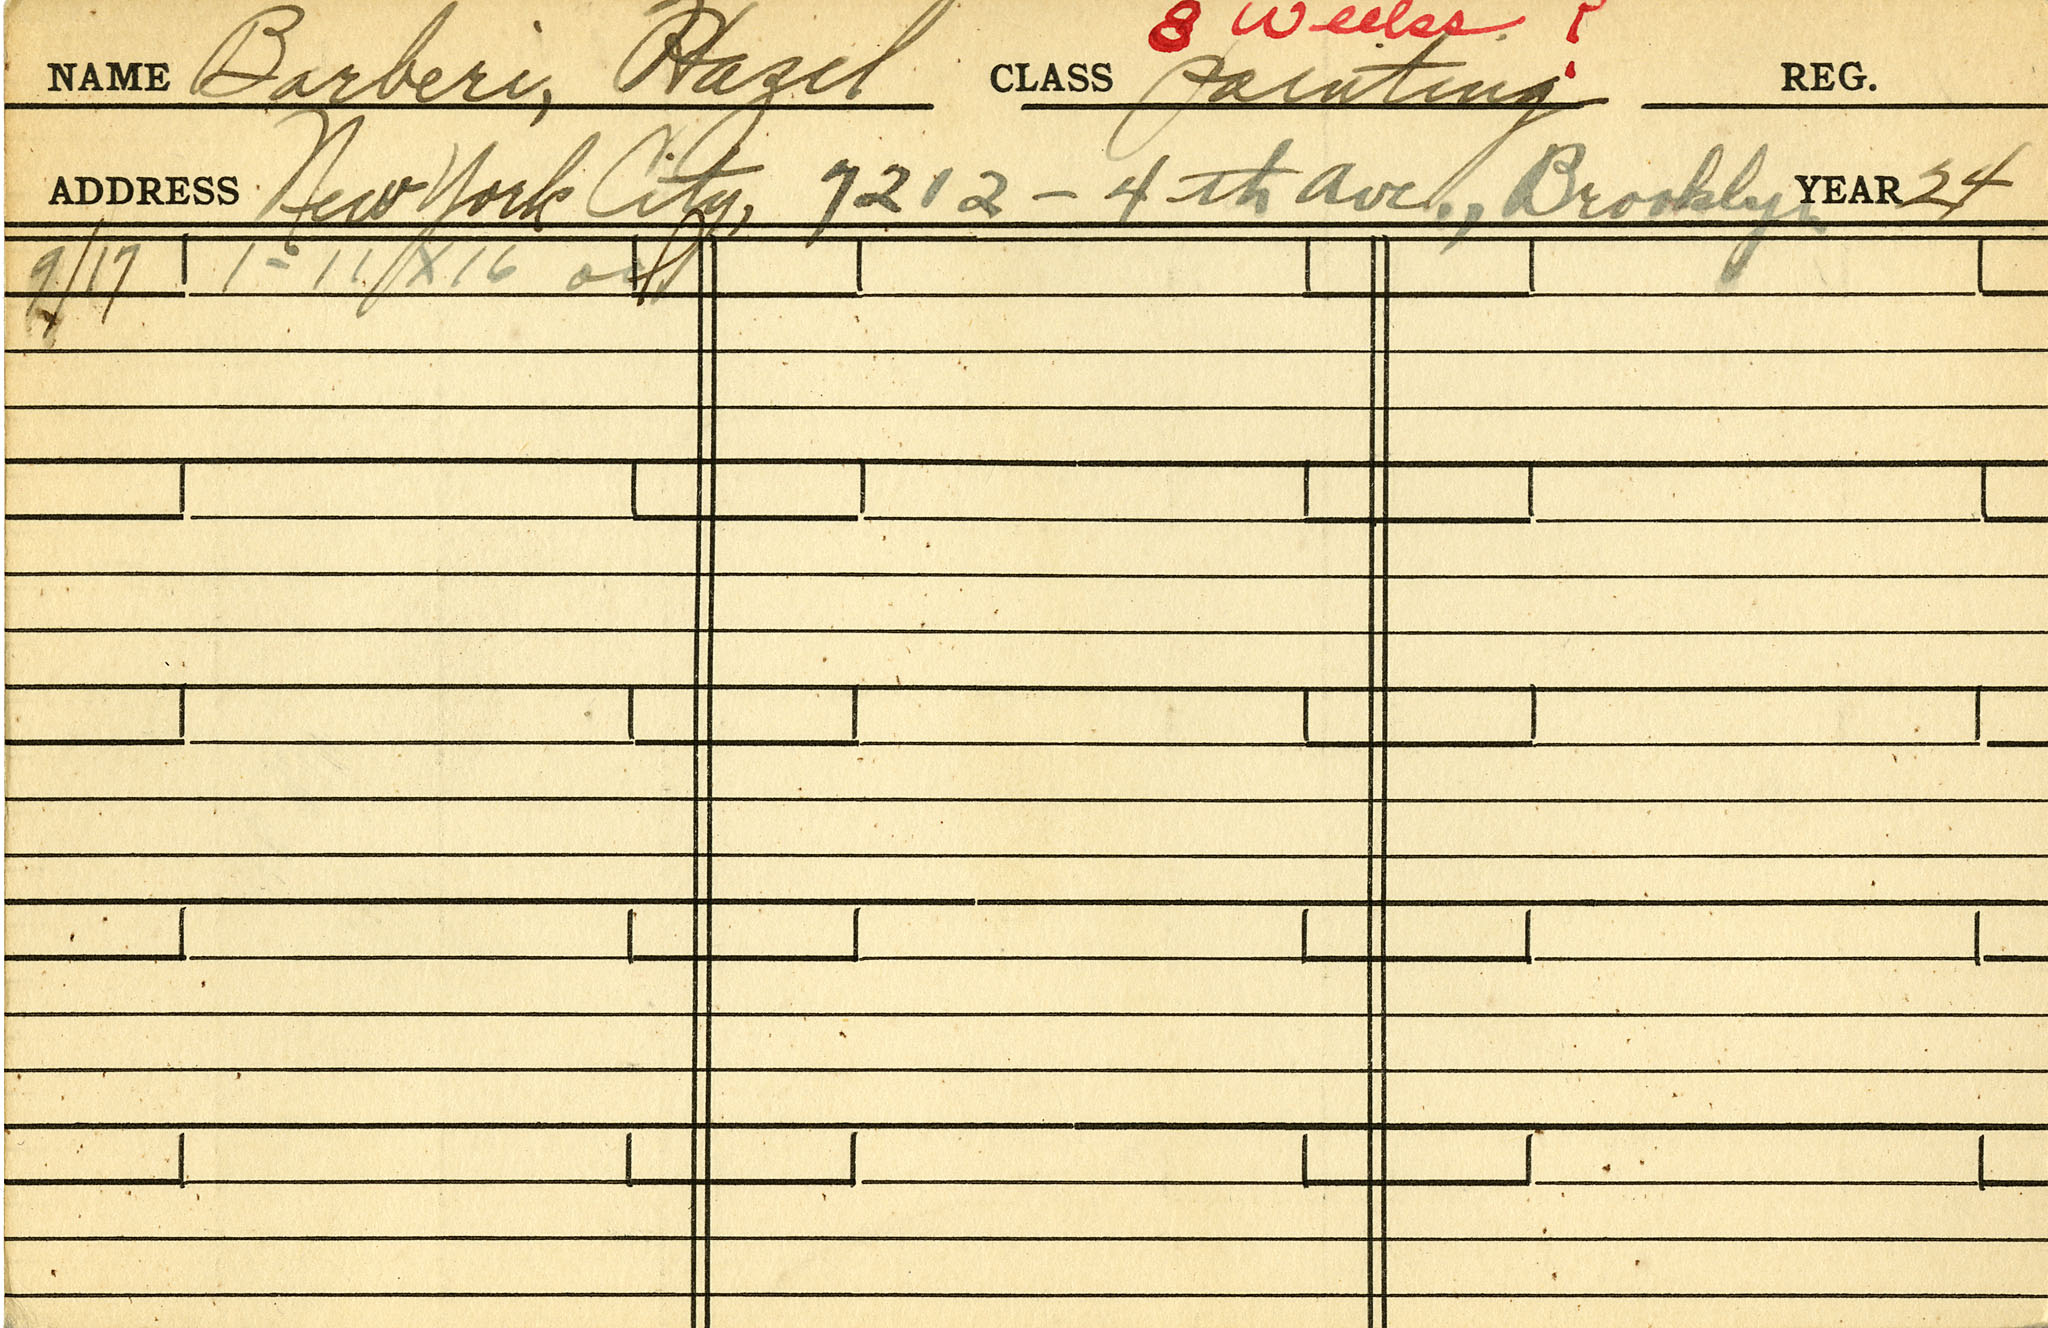 8 Weeks ?
NAME Barberi, Hazel CLASS painting REG.
ADDRESS New York City, 7212 - 4th Ave., Brooklyn YEAR 24
9/17 1 - 11 X 16 oil